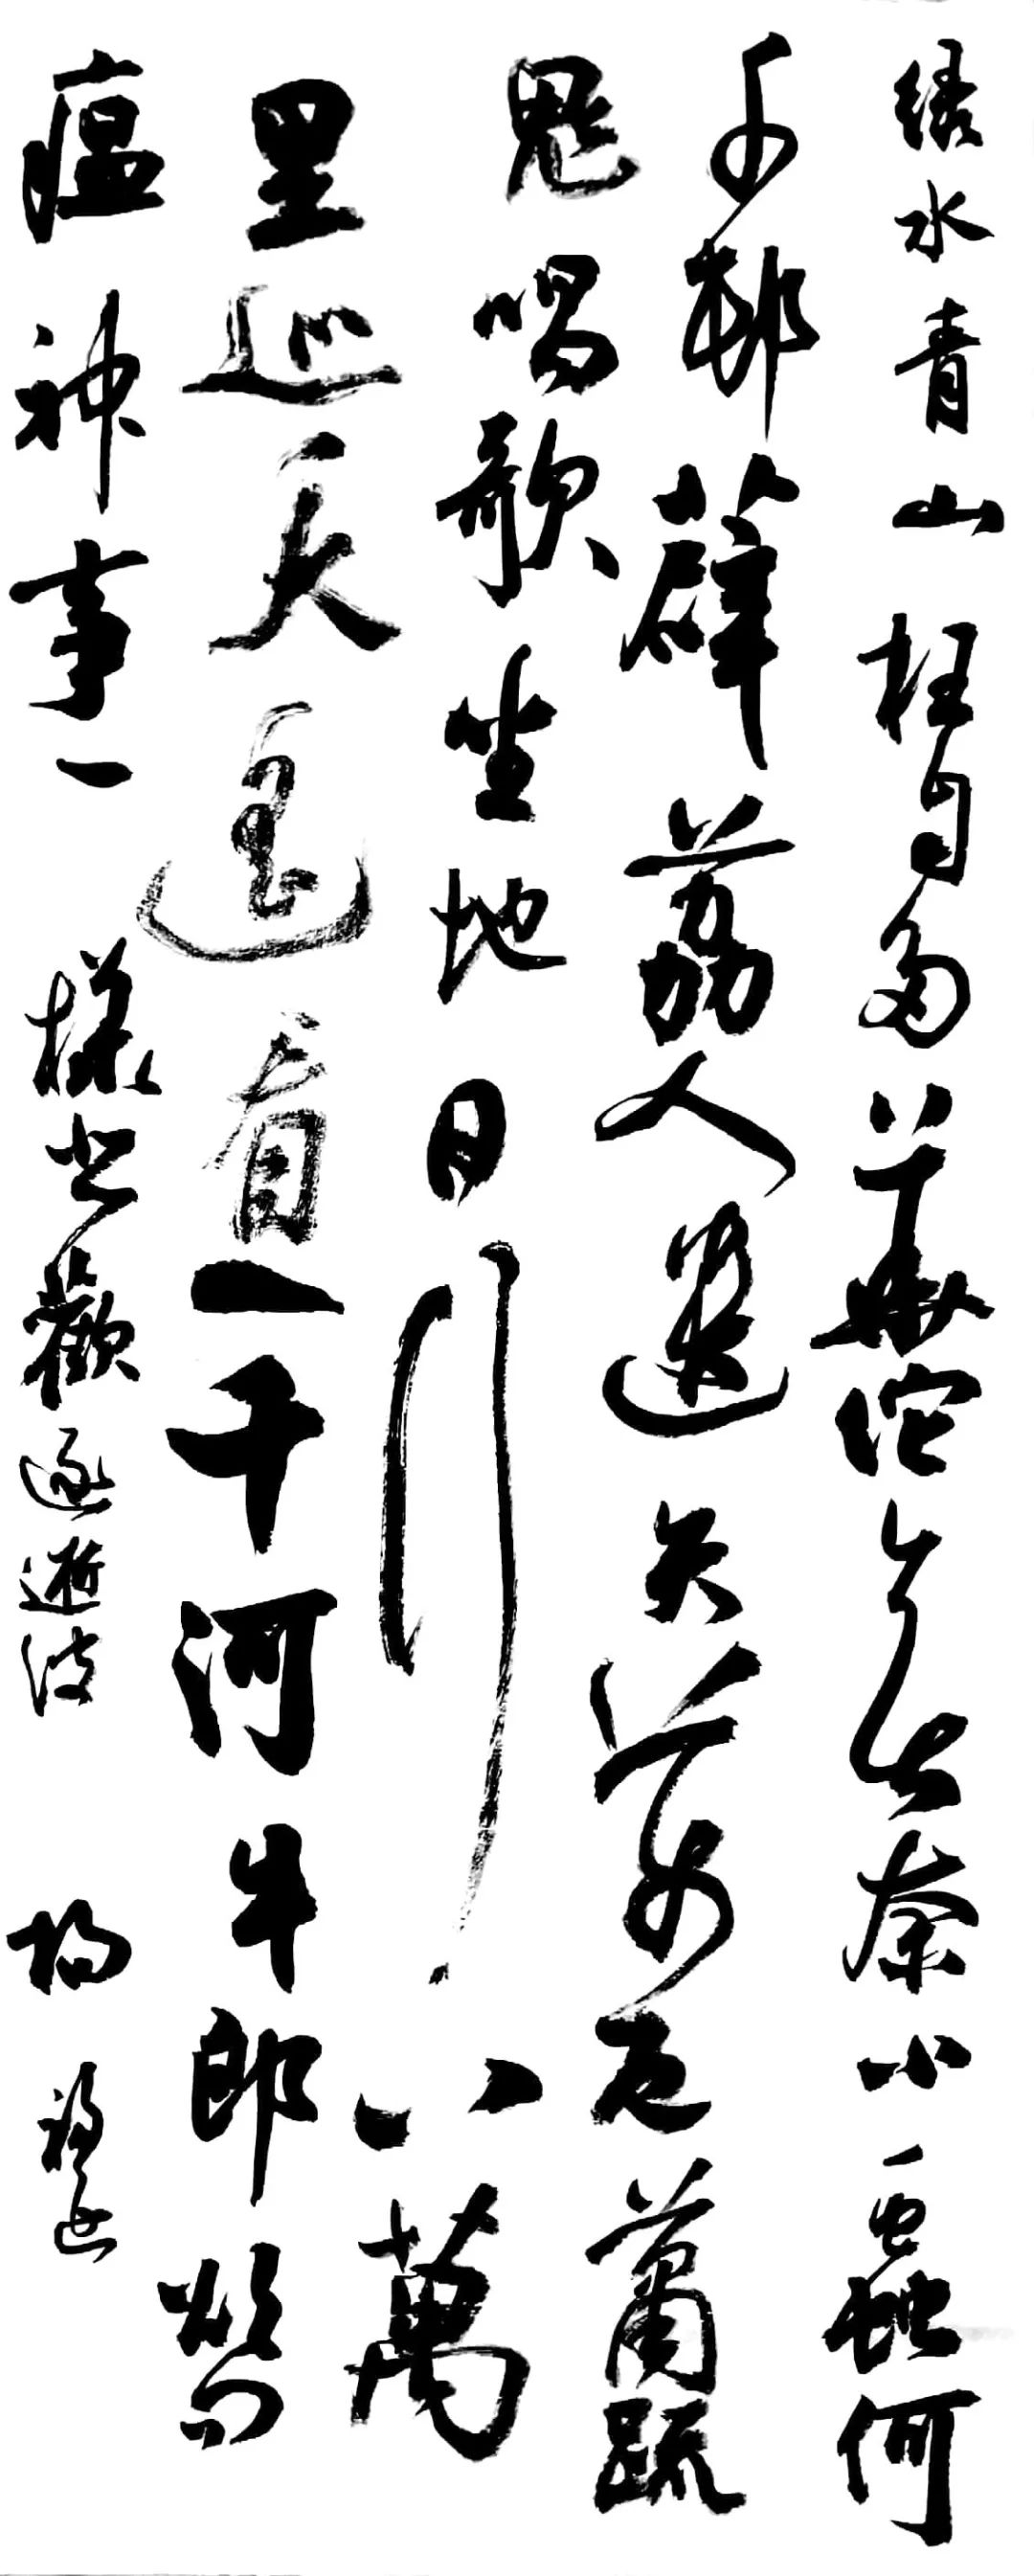 綠水青山枉自多華佗無奈小蟲何
千邨薜荔人遺矢萬戶蕭疏
鬼唱歌坐地日行八萬
里巡天遙看一千河牛郎欲問
瘟神事一樣悲歡逐逝波 楊